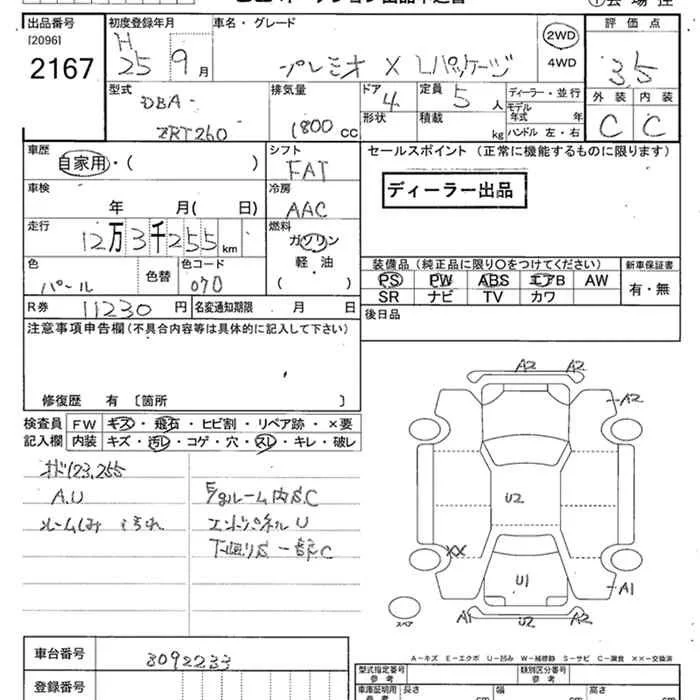 出品番号 初度登録年月 車名・グレード 評価点
[2096]
2167
H
25 9 月 プレミオ X Lパッケージ 2WD 4WD 3.5
型式 排気量 ドア 定員 ディーラー・並行 外装 内装
DBA- 4 5 人 モデル年式 年 C C
ZRT260 1800 cc 形状 積載 kg ハンドル 左・右
車歴 シフト セールスポイント (正常に機能するものに限ります)
自家用・( ) FAT
車検 冷房 ディーラー出品
年 月( 日) AAC
走行 燃料
12万3千255 km ガソリン
軽・油
( )
色 色替 色コード 装備品(純正品に限り○をつけてください) 新車保証書
パール 070 PS PW ABS エアB AW 有・無
SR ナビ TV カワ
R券 11230 円 名変通知期限 月 日 後日品
注意事項申告欄(不具合内容等は具体的に記入して下さい)
修復歴 有 [箇所 ]
検査員 FW キズ・飛石・ヒビ割・リペア跡・×要
記入欄 内装 キズ・汚レ・コゲ・穴・スレ・キレ・破レ
オド123,255
A.U E/gルーム内サC
ルームしみ 汚れ エンドパネルU
下廻りサ 一部C
A2 A2
A2
U2
XX
U1
A1
A1 U2 A2
スペア
A-キズ E-エクボ U-凹み W-補修跡 S-サビ C-腐食 ××-交換済
車台番号 3092233
登録番号
型式指定番号 参考 類別区分番号 参考
車庫証明用 参考 長さ cm 幅 cm 高さ cm